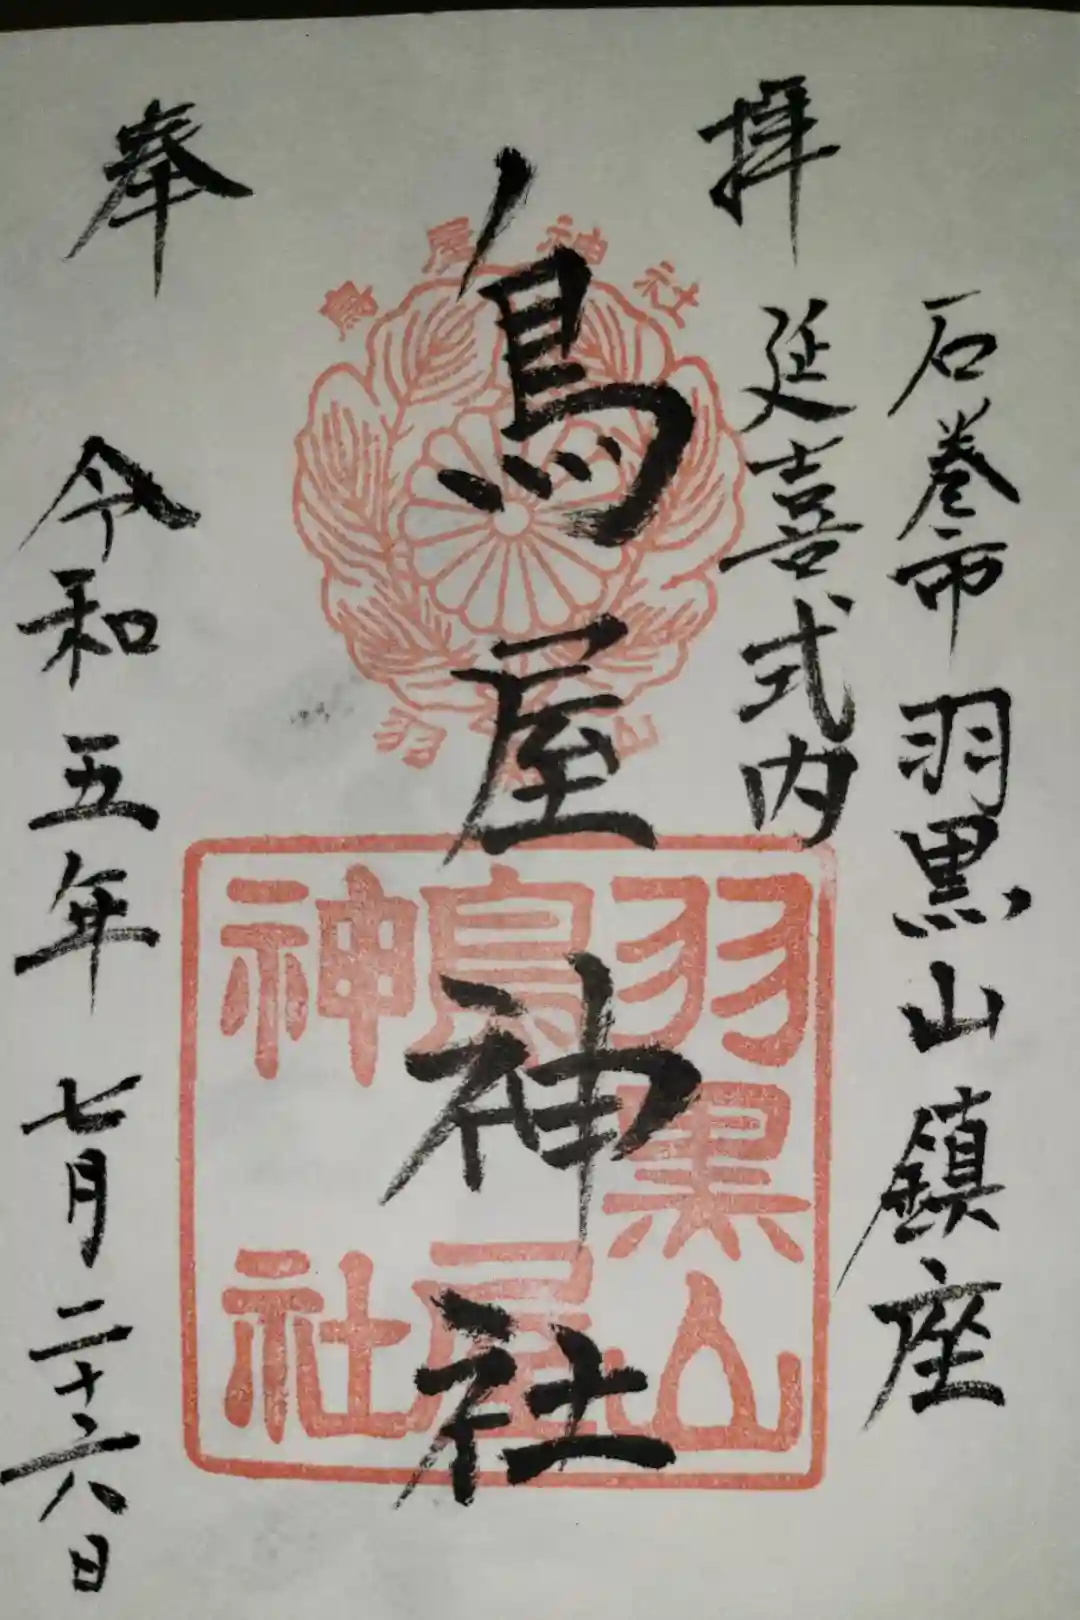 石巻市 羽黒山 鎮座
拝 延喜式内
鳥屋神社
奉 令和五年 七月二十六日
鳥屋神社
羽
山
羽黒山
鳥屋
神社